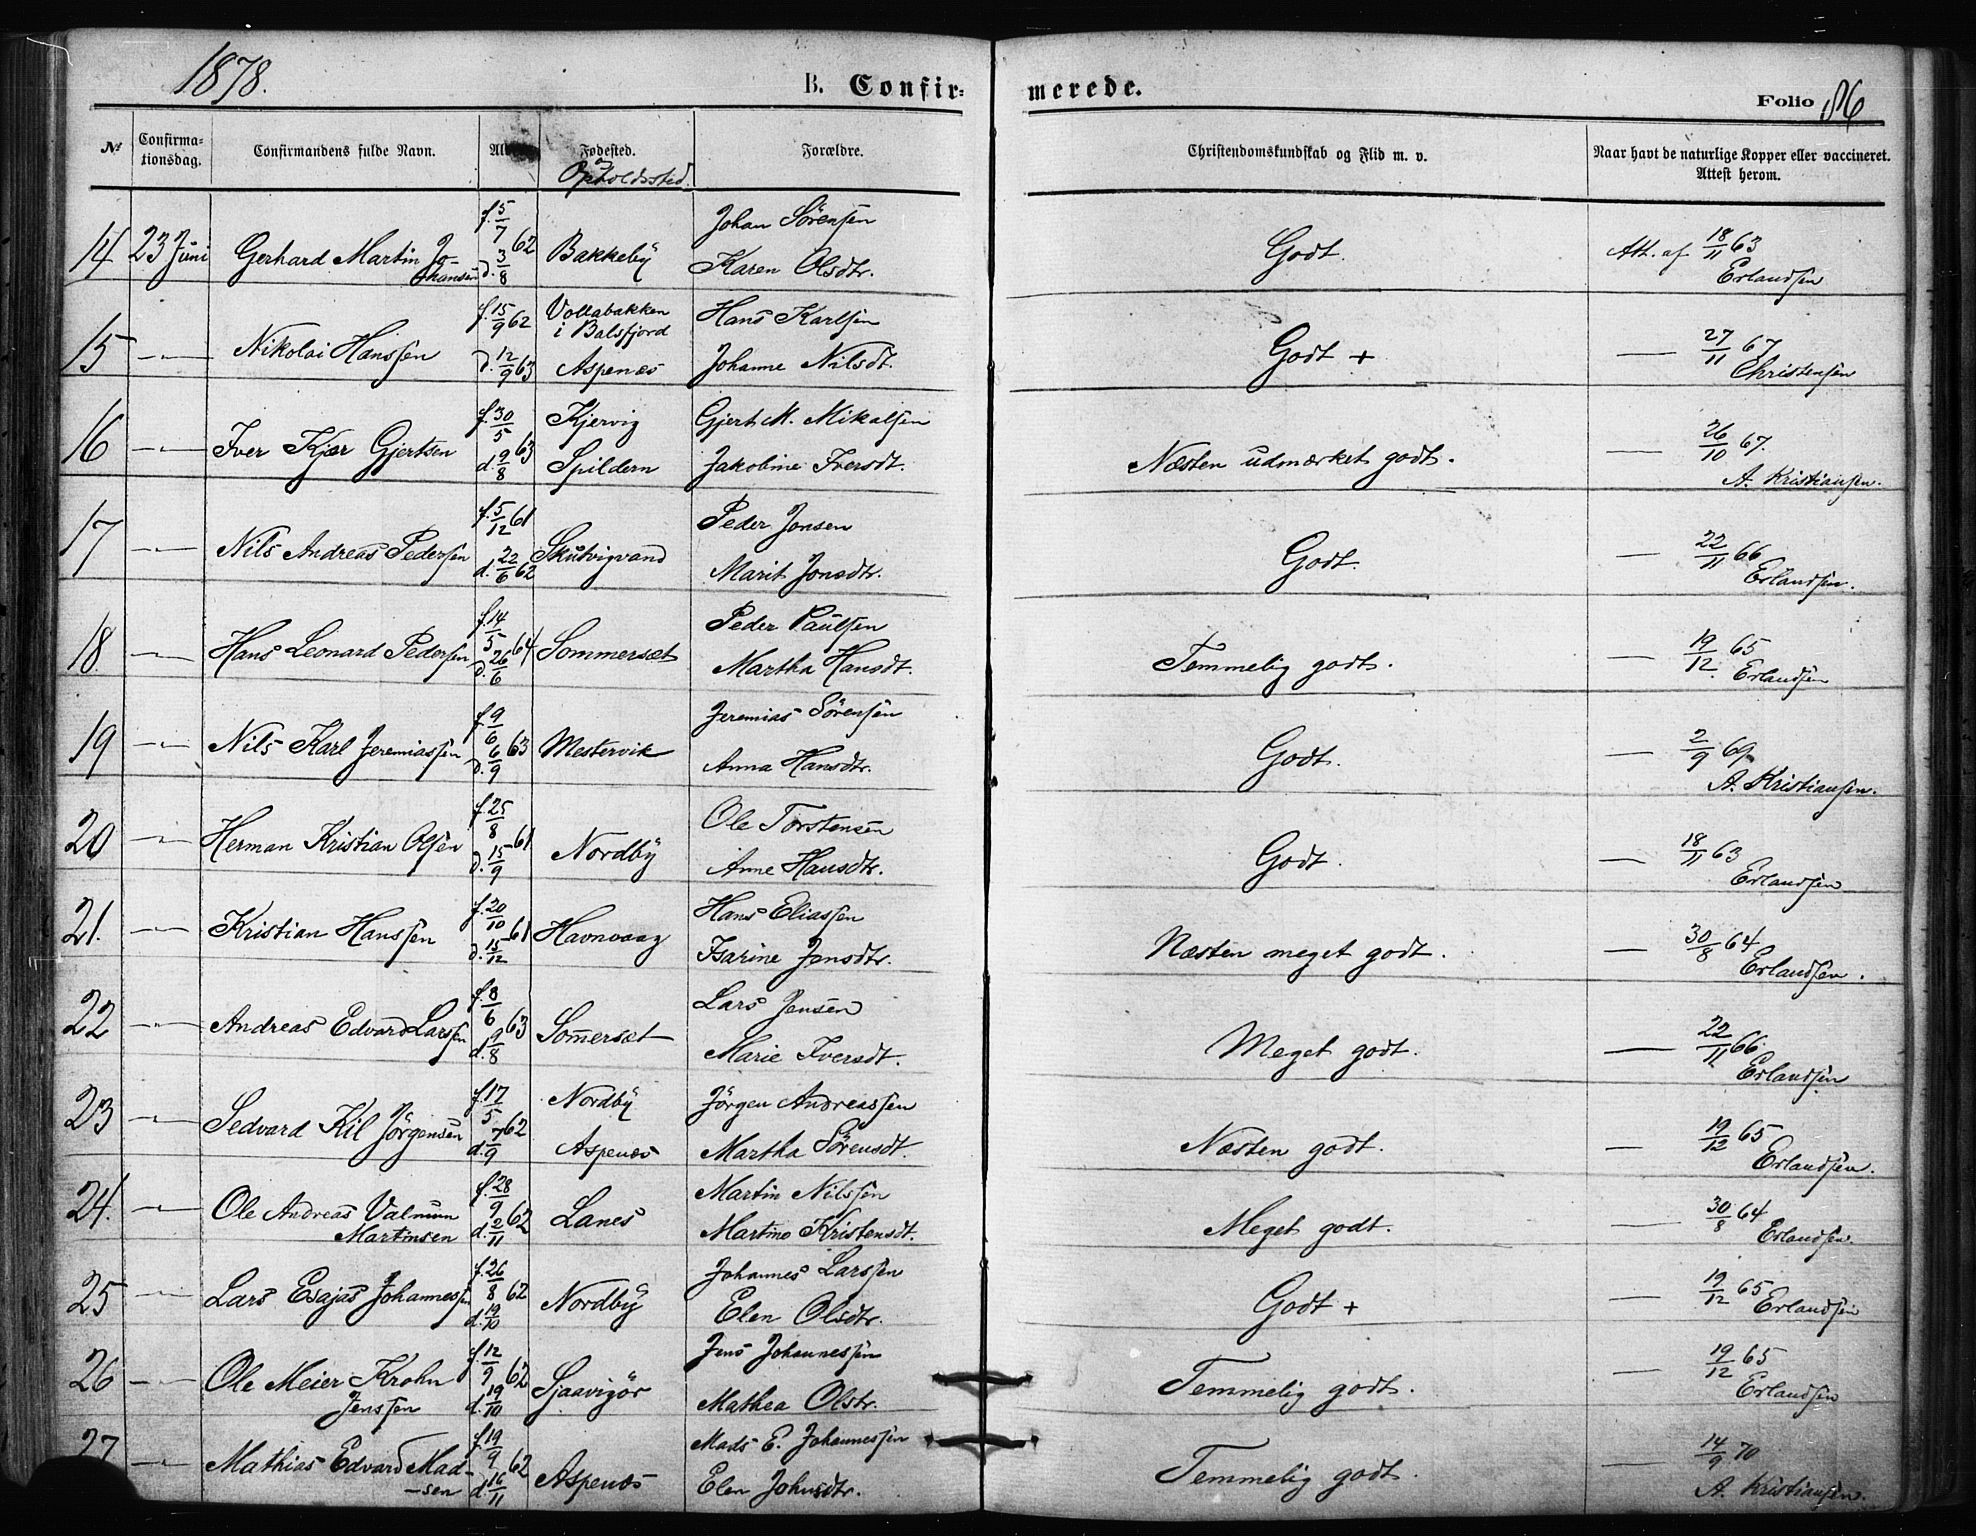 1878.
B. Confir-
merede.
Folio 86
№
Confirma-
tionsdag.
Confirmandens fulde Navn.
Fødested.
Opholdssted.
Forældre.
Christendomskundskab og Flid m. v.
Naar havt de naturlige Kopper eller vaccineret.
Attest herom.
14 23 Juni Gerhard Martin Jo-
hansen
f. 5/7 62
d. 3/8
Bakkeby
Johan Sörensen
Karen Olsdtr.
Godt.
Att. af 18/11 63
Erlandsen
15 —"— Nikolai Hanssen
f. 15/9 62
d. 12/9 63
Vollabakken
i Balsfjord
Aspenæs
Hans Karlsen
Johanne Nilsdt.
Godt +
— 27/11 67
Christensen
16 —"— Iver Kjær Gjertsen
f. 30/5 63
d. 9/8
Kjervig
Spildern
Gjert M. Mikalsen
Jakobine Iversdt.
Næsten udmærket godt.
— 26/10 67.
A. Kristiansen.
17 —"— Nils Andreas Pedersen
f. 5/12 61
d. 22/6 62
Skutvigvand
Peder Jonsen
Marit Jonsdtr.
Godt.
— 22/11 66
Erlandsen.
18. —"— Hans Leonard Pedersen
f. 14/5 64
d. 26/6
Sommersæt
Peder Paulsen
Martha Hansdt.
Temmelig godt.
— 19/12. 65
Erlandsen
19 —"— Nils Karl Jeremiassen
f. 9/6 63
d. 6/9
Mestervik
Jeremias Sörensen
Anna Hansdtr.
Godt.
— 2/9 69
A. Kristiansen.
20 —"— Herman Kristian Olsen
f. 25/8 61
d. 15/9
Nordby
Ole Torstensen
Anne Hansdtr.
Godt.
— 18/11 63
Erlandsen
21. —"— Kristian Hanssen
f. 20/10 61
d. 15/12
Havnvaag
Hans Eliassen
Isarine Jensdtr.
Næsten meget godt.
— 30/8 64
Erlandsen.
22 —"— Andreas Edvard Larssen
f. 8/6 63
d. 9/8
Somersæt
Lars Jensen
Marie Iversdt.
Meget godt.
— 22/11 66.
Erlandsen
23 —"— Sedvard Kil Jörgensen
f. 17/5 62
d. 7/9
Nordby
Aspenæs
Jörgen Andreassen
Martha Sörensdt.
Næsten godt.
— 19/12 65
Erlandsen.
24. —"— Ole Andreas
Martinsen
f. 28/9 62
d. 2/11
Lanes
Martin Nilssen
Martino Kristensdt.
Meget godt.
— 30/8 64
Erlandsen.
25 —"— Lars Esajas Johannessen
f. 26/8 62
d. 19/10
Nordby
Johannes Larssen
Elen Olsdtr.
Godt +
— 19/12 65
Erlandsen
26 —"— Ole Meier Krohn
Jenssen
f. 12/9 62
d. 19/10
Jens Johannessen
Mathea Olstr.
Temmelig godt.
— 19/12 65
Erlandsen
27 —"— Mathias Edvard Mad-
-sen
f. 19/9 62
d. 16/11
Aspenæs
Mads E. Johannessen
Elen Johnsdtr.
Temmelig godt.
— 14/9 70
A. Kristiansen.